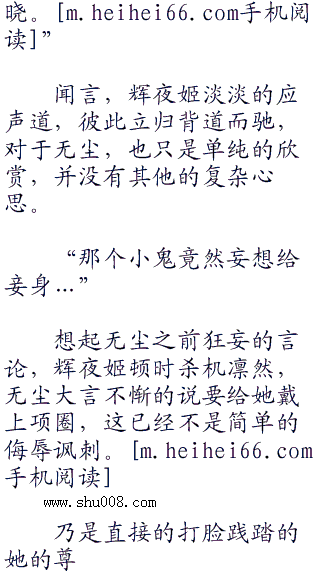 晓。[m.heihei66.com手机阅
读]”
闻言，辉夜姬淡淡的应
声道，彼此立归背道而驰，
对于无尘，也只是单纯的欣
赏，并没有其他的复杂心
思。
“那个小鬼竟然妄想给
妾身…”
想起无尘之前狂妄的言
论，辉夜姬顿时杀机凛然，
无尘大言不惭的说要给她戴
上项圈，这已经不是简单的
侮辱讽刺。[m.heihei66.com
手机阅读]
www.shu008.com
乃是直接的打脸践踏的
她的尊